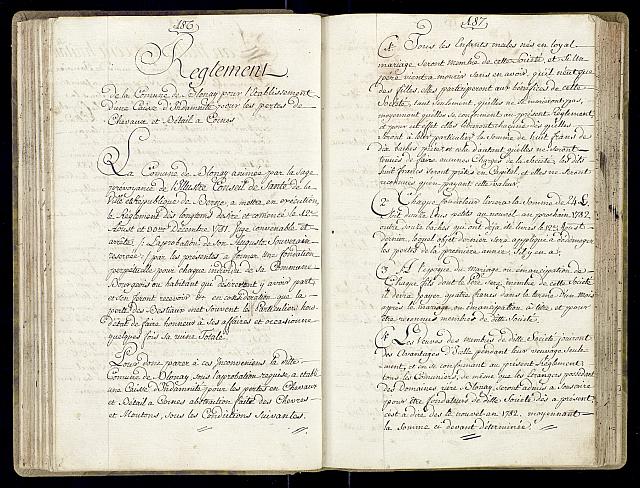 186
Reglement
de la Comune de Blonay pour l'Etablissement
d'une Caisse d'Indamnité pour les pertes de
Chevaux et Bétail a Cornes
La Comune de Blonay animée par la Sage
prévoyance de l'Illustre Conseil de Santé de la
Ville et République de Berne, a mettre en exécution,
le Règlement dès longtems desiré et anoncé le 12me
Aoust et 30me Décembre 1781. juge convenable et
arrête, s. l'aprobation de son Auguste Souverain
reservée / par les presentes a former une fondation
perpetuelle pour chaque individu de sa Commune
Bourgeois ou habitant qui desireront y avoir part,
et s'en feront recevoir et en considération que la
perte des Bestiaux met souvent le Particulier hors
d'etat de faire honneur à ses affaires et occasionne
quelques fois sa ruine Totale.
Pour donc parer à ces Inconveniens la ditte
Comune de Blonay sous l'aprobation requise, a établi
une Caisse d'Indamnité pour les pertes en Chevaux
et Bétail a Cornes abstraction faite des Chevres
et Moutons, sous les Conditions Suivantes.
187
1 Tous les Enfants males nés en loyal
mariage seront membre de cette Société, et Si un
père vient a mourir sans en avoir, qu'il n'eut que
des filles, elles participeront aux bénéfices de cette
Société, tant seulement qu'elles ne se mariront pas,
moyennant qu'elles se conforment au présent Règlement,
et pour cet effet elles livreront chacune dès qu'elles
seront à leur particulier la somme de huit francs de
dix baches pièce et cela d'autant qu'elles ne seront
tenues de faire aucunes Charges de la Société, les dits
huit francs seront placés en Capital, et elles ne seront
reconnues qu'en payant cette valeur.
2 Chaque fondateur livrera la Somme de 24 L.
soit douze Ecus petits au nouvel an prochain 1782.
outre douze baches qui ont déja été livrés le 12me Aoust
dernier, lequel objet dernier sera appliqué a dedomager
les pertes de la première année, s'il y en a.
3 A l'époque du mariage ou émancipation de
Chaque fils dont le Père sera membre de cette Société
il devra payer quatre francs dans le terme d'un mois
après le mariage ou émancipation à titre et pour
être reconnus membres de ditte Société.
4 Les Veuves des membres de ditte Société jouiront
des avantages d'Icelle pendant leur veuvage seule-
ment, et en se conformant au présent Règlement
tous les Comuniers, de même que les étrangers possedant
des Domaines rière Blonay, seront admis a souscrire
pour être fondateurs de ditte Société dès a présent,
c'est a dire dès le nouvel an 1782. moyennant
la Somme ci devant déterminée.